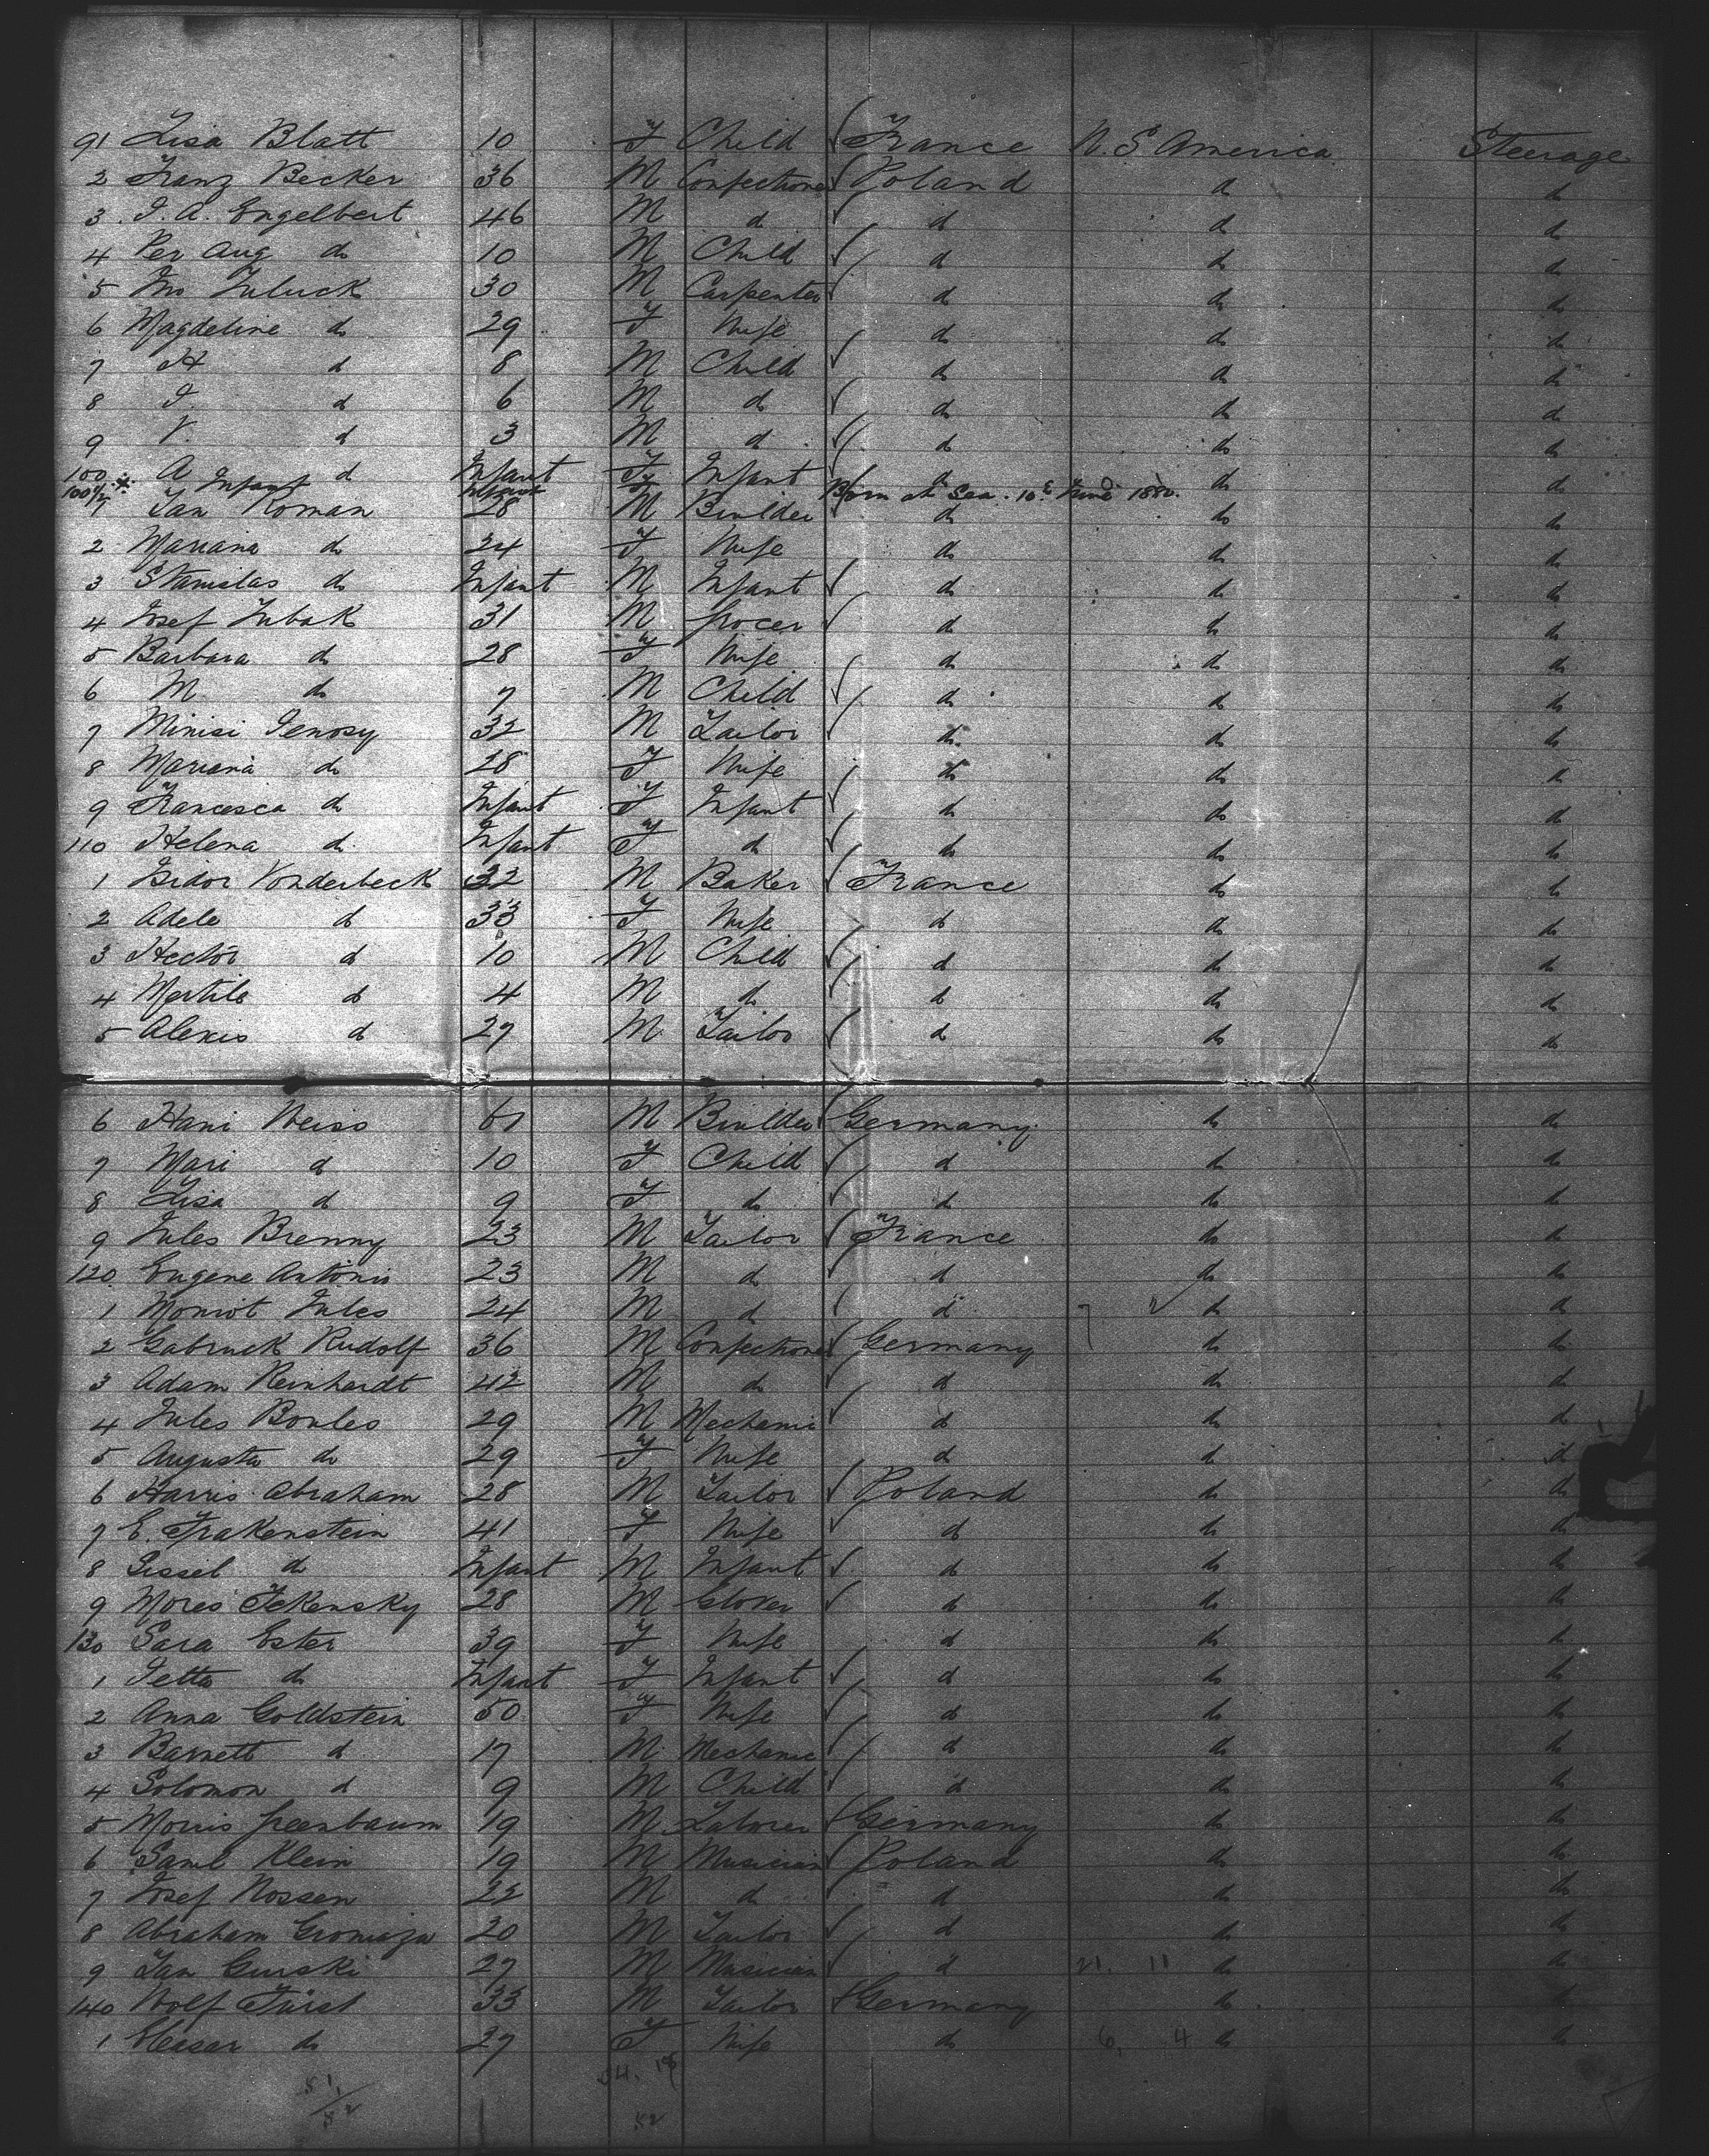 91 Lisa Blatt 10 F Child France U. S. America Steerage
2 Franz Becker 36 M Confectioner Poland do do
3 I. A. Engelbert 46 M do do do do
4 Per Aug do 10 M Child do do do
5 Jno 30 M Carpenter do do do
6 Magdeline do 29 F Wife do do do
7 H do 8 M Child do do do
8 I. do 6 M do do do do
9 V. do 3 M do do do do
100 A do Infant F Infant do do do
100½ * Infant F Born at Sea. 10th June 1880.
1 Jan Roman 28 M Builder do do do
2 Mariana do 24 F Wife do do do
3 Stanislas do Infant M Infant do do do
4 Josef Zubak 31 M Grocer do do do
5 Barbara do 28 F Wife do do do
6 M do 7 M Child do do do
7 Minisi 32 M Tailor do do do
8 Mariana do 28 F Wife do do do
9 Francesca do Infant F Infant do do do
110 Helena do Infant F do do do do
1 Isidor Vonderbeck 32 M Baker France do do
2 Adele do 33 F Wife do do do
3 Hector do 10 M Child do do do
4 do 4 M do do do do
5 Alexis do 27 M Tailor do do do
6 Hani Weiss M Builder Germany do do
7 Mari do 10 F Child do do do
8 Lisa do 9 F do do do do
9 Jules Brenny 23 M Tailor France do do
120 Eugene Antonio 23 M do do do do
1 Moniot Jules 24 M do do do do
2 Gabruck Rudolf 36 M Confectioner Germany do do
3 Adam Reinhardt 42 M do do do do
4 Jules Boules 29 M Mechanic do do do
5 Augusta do 29 F Wife do do do
6 Harris Abraham 28 M Tailor Poland do do
7 E. Frakenstein 41 F Wife do do do
8 Gissel do Infant M Infant do do do
9 Mores 28 M Glover do do do
130 Sara Ester 39 F Wife do do do
1 Jetta do Infant F Infant do do do
2 Anna Goldstein 50 F Wife do do do
3 Barnett do 17 M Mechanic do do do
4 Solomon do 9 M Child do do do
5 Morris Greenbaum 19 M Laborer Germany do do
6 Saml Klein 19 M Musician Poland do do
7 Josef Nossen 22 M do do do do
8 Abraham 20 M Tailor do do do
9 Jan Gurski 27 M Musician do 21. 11 do do
140 Wolf Fürst 33 M Tailor Germany do do
1 Eleasar do 27 F Wife do 6, 4 do do
52